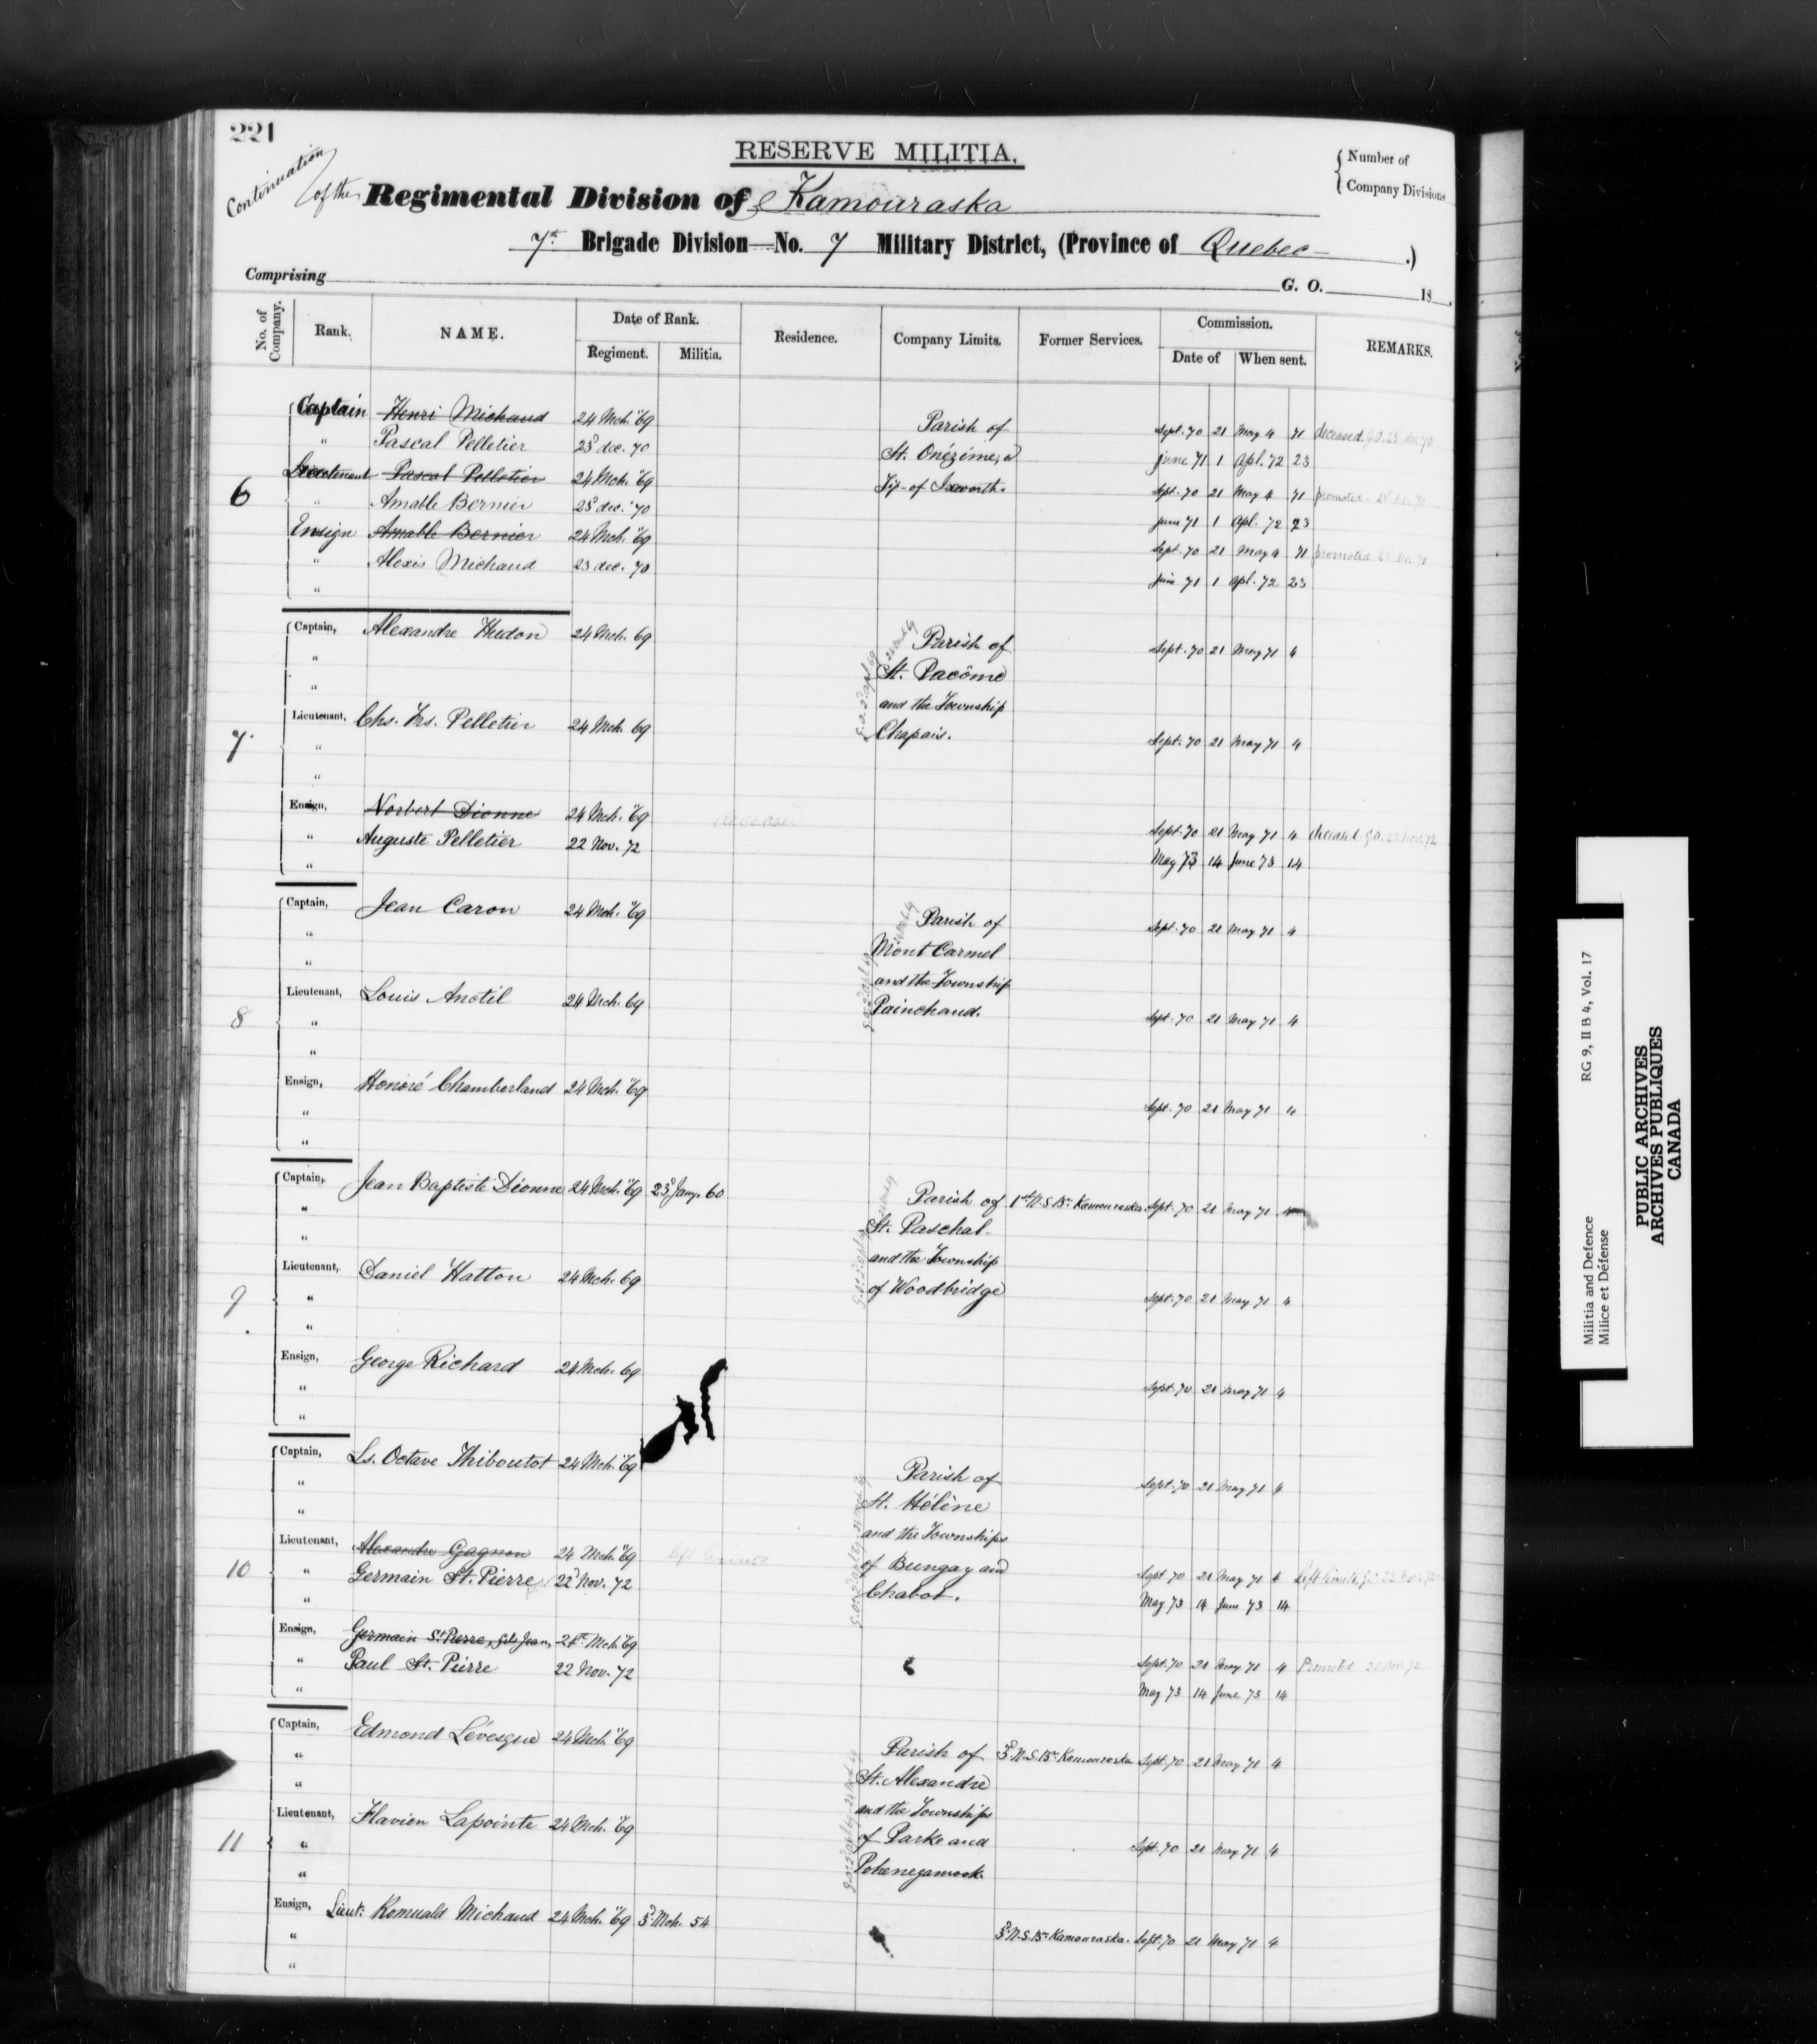 221
RESERVE MILITIA.
Continuation of the Regimental Division of Kamouraska
Number of Company Divisions
7th Brigade Division—No. 7 Military District, (Province of Quebec .)
Comprising G. O. 18 .
No. of Company. Rank. NAME. Date of Rank. Residence. Company Limits. Former Services. Commission. REMARKS.
Regiment. Militia. Date of When sent.
6
Captain Henri Michaud 24 Mch. 69 Parish of Sept. 70 21 May 4 71 deceased G.O. 23 dec. 70
" Pascal Pelletier 23d dec. 70 St. Onézime, & June 71 1 Apl. 72 23
Lieutenant Pascal Pelletier 24 Mch. 69 Tip of Ixworth. Sept. 70 21 May 4 71 promoted 23 dec. 70
" Amable Bernier 23d dec. 70 June 71 1 Apl. 72 23
Ensign Amable Bernier 24 Mch. 69 Sept. 70 21 May 4 71 promoted 23 dec. 70
" Alexis Michaud 23 dec. 70 June 71 1 Apl. 72 23
"
7.
Captain, Alexandre Hudon 24 Mch. 69 Parish of Sept. 70 21 May 71 4
" St. Pacôme
" and the Township
Lieutenant, Chs. Frs. Pelletier 24 Mch. 69 Chapais. Sept. 70 21 May 71 4
G.O. 2d Apl 69
"
"
Ensign, Norbert Dionne 24 Mch. 69 Sept. 70 21 May 71 4 deceased. G.O. 22 Nov. 72
" Auguste Pelletier 22 Nov. 72 May 73 14 June 73 14
"
8
Captain, Jean Caron 24 Mch. 69 Parish of Sept. 70 21 May 71 4
" Mont Carmel
" and the Township
Lieutenant, Louis Anctil 24 Mch. 69 Painchaud. Sept. 70 21 May 71 4
G.O. 2d Apl 69
"
"
Ensign, Honoré Chamberland 24 Mch. 69 Sept. 70 21 May 71 4
"
"
9
Captain, Jean Baptiste Dionne 24 Mch. 69 23d Jany. 60 Parish of 1st N.S. Bn. Kamouraska. Sept. 70 21 May 71 4
" St. Paschal
" and the Township
Lieutenant, Daniel Hatton 24 Mch. 69 of Woodbridge Sept. 70 21 May 71 4
"
"
Ensign, George Richard 24 Mch. 69 Sept. 70 21 May 71 4
"
"
10
Captain, Ls. Octave Thiboutot 24 Mch. 69 Parish of Sept. 70 21 May 71 4
" St. Hélène
" and the Townships
Lieutenant, Alexandre Gagnon 24 Mch. 69 left limits of Bungay and Sept. 70 21 May 71 4 Left limits, G.O. 22 Nov. 72
" Germain St. Pierre 22d Nov. 72 Chabot. May 73 14 June 73 14
"
Ensign, Germain St. Pierre, fils Jean, 24th Mch. 69 Sept. 70 21 May 71 4 Promoted 22 Nov. 72
" Paul St. Pierre 22 Nov. 72 May 73 14 June 73 14
"
11
Captain, Edmond Lévesque 24 Mch. 69 Parish of 3d N.S. Bn. Kamouraska Sept. 70 21 May 71 4
" St. Alexandre
" and the Townships
Lieutenant, Flavien Lapointe 24 Mch. 69 of Parke and Sept. 70 21 May 71 4
" Pohenegamook.
"
Ensign, Lieut. Romuald Michaud 24 Mch. 69 3d Mch. 54 3d N.S. Bn. Kamouraska. Sept. 70 21 May 71 4
"
"
Militia and Defence RG 9, II B 4, Vol. 17
Milice et Défense
PUBLIC ARCHIVES
ARCHIVES PUBLIQUES
CANADA